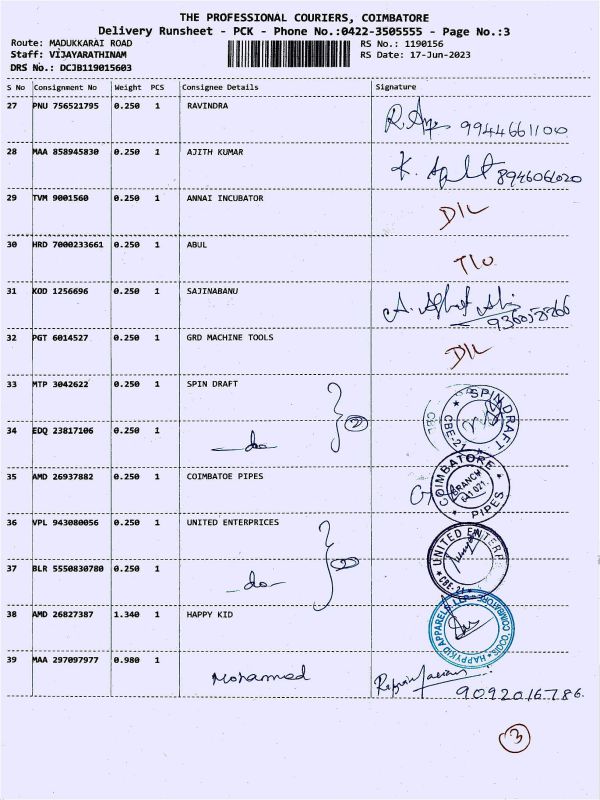 THE PROFESSIONAL COURIERS, COIMBATORE
Delivery Runsheet - PCK - Phone No.:0422-3505555 - Page No.:3
Route: MADUKKARAI ROAD RS No.: 1190156
Staff: VIJAYARATHINAM RS Date: 17-Jun-2023
DRS No.: DCJB119015603
S No Consignment No Weight PCS Consignee Details Signature
27 PNU 756521795 0.250 1 RAVINDRA
9944661100
28 MAA 858945830 0.250 1 AJITH KUMAR
K. 8946061020
29 TVM 9001560 0.250 1 ANNAI INCUBATOR
D/L
30 HRD 7000233661 0.250 1 ABUL
T/O
31 KOD 1256696 0.250 1 SAJINABANU
A.
32 PGT 6014527 0.250 1 GRD MACHINE TOOLS
D/L
33 MTP 3042622 0.250 1 SPIN DRAFT
2
SPIN DRAFT
CBE-21
34 EDQ 23817106 0.250 1 -do-
35 AMD 26937882 0.250 1 COIMBATOE PIPES
COIMBATORE PIPES
BRANCH
641 021.
36 VPL 943080056 0.250 1 UNITED ENTERPRICES
2
UNITED ENTERP
CBE-21
37 BLR 5550830780 0.250 1 -do-
38 AMD 26827387 1.340 1 HAPPY KID
HAPPYKID APPARELS LLP COIMBATORE
39 MAA 297097977 0.980 1 Mohammed
9092016786.
3